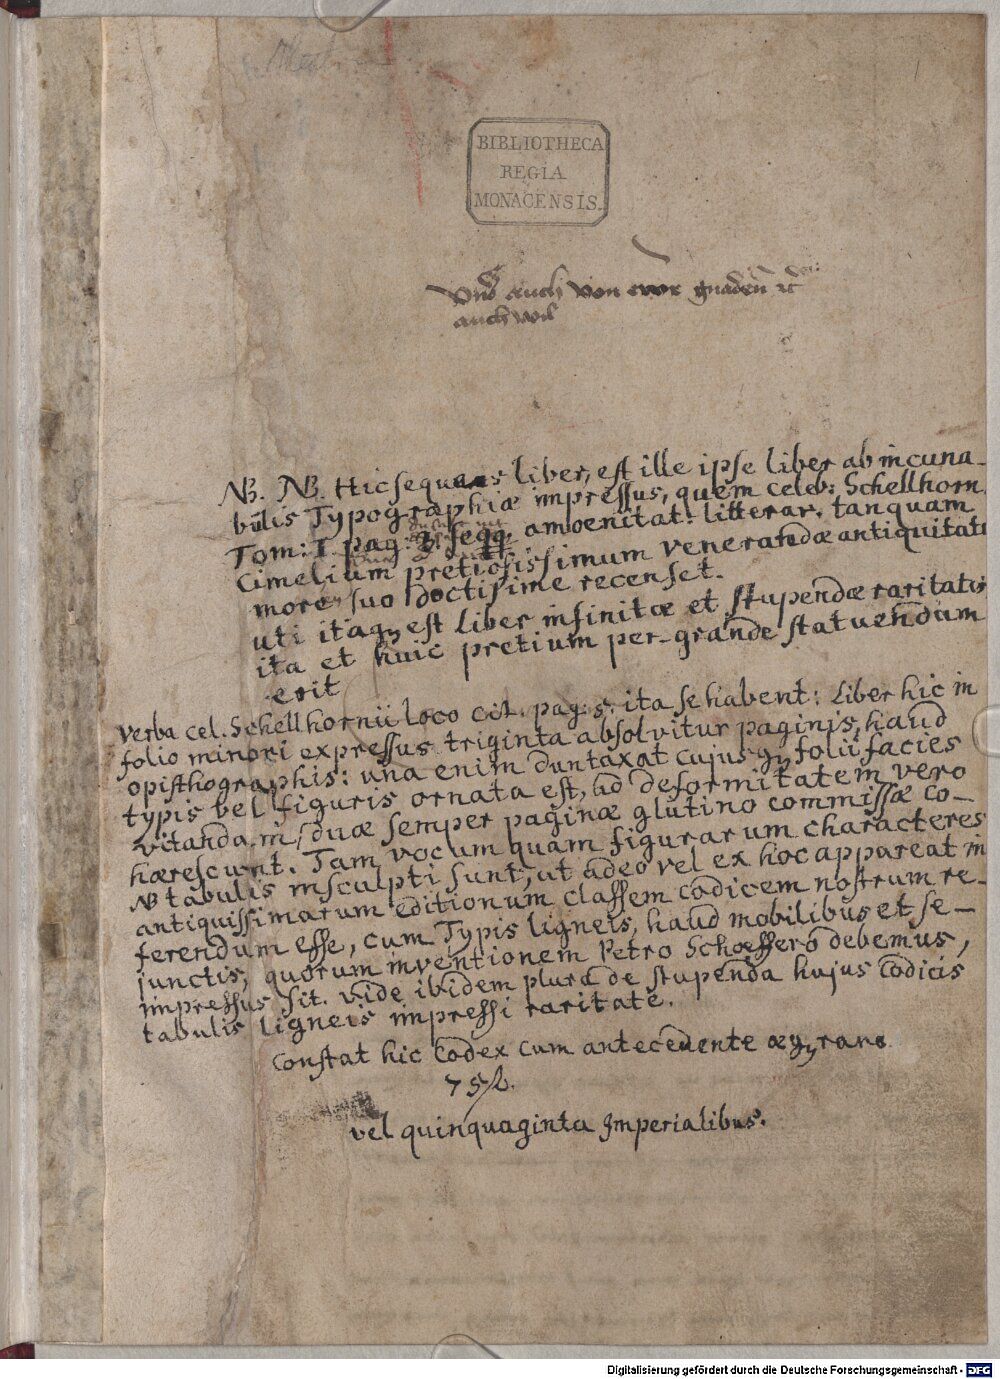 BIBLIOTHECA
REGIA
MONACENSIS.
Und auch von ewr gnaden ꝛc
auch wil
NB. NB. Hic sequens liber, est ille ipse liber ab incuna-
bulis Typographiæ impressus, quem celeb: Schellhorn
Tom: I pag. 3. seqq. amoenitat: litterar. tanquam
Cimelium pretiosissimum venerandæ antiquitatis
more suo doctissime recenset.
uti itaq; est Liber infinitæ et stupendæ raritatis
ita et huic pretium per-grande statuendum
erit
Verba cel. Schellhornii Loco cit. pag: 5. ita se habent: Liber hic in
folio minori expressus triginta absolvitur paginis, haud
opisthographis: una enim duntaxat cujusq; folii facies
typis vel figuris ornata est, ad deformitatem vero
vitandam, duæ semper paginæ glutino commissæ co-
hærescunt. Tam vocum quam figurarum characteres
NB tabulis insculpti sunt, ut adeo vel ex hoc appareat in
antiquissimarum editionum classem codicem nostrum re-
ferendum esse, cum Typis ligneis, haud mobilibus et se-
junctis, quorum inventionem Petro Schoeffero debemus,
impressus sit. vide ibidem plura de stupenda hujus Codicis
tabulis ligneis impressi raritate.
Constat hic Codex cum antecedente æq; raro
75 fl.
vel quinquaginta Imperialibus.
Digitalisierung gefördert durch die Deutsche Forschungsgemeinschaft - DFG